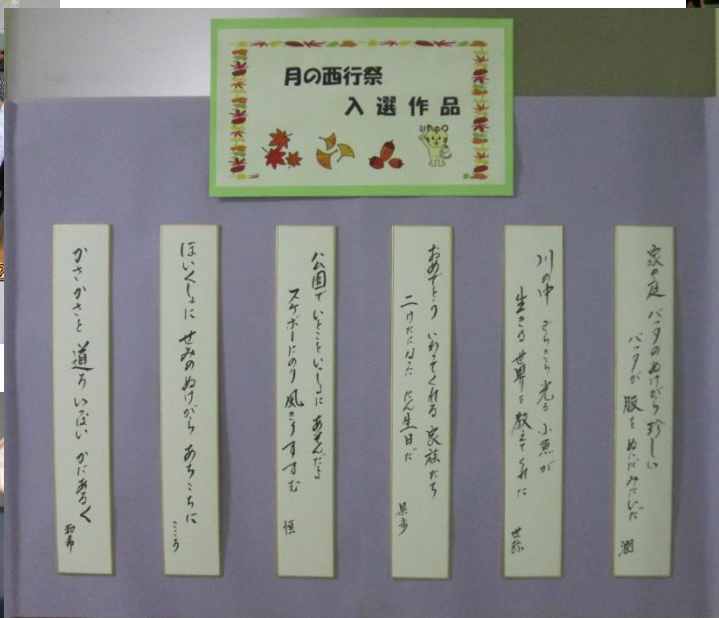 月の西行祭
入選作品
家の庭 バッタのぬけがら 珍しい
バッタが 服を ぬいだみたいだ
潤
川の中 きらきら光る 小魚が
生きる 世界を 教えてくれた
世弥
おめでとう いわってくれる 家族たち
二けたになった たん生日だ
公園で いとこといっしょに あそんだよ
スケボーにのり 風きりすすむ
慎
ほいくしょに せみのぬけがら あちこちに
こころ
かさかさと 道ろいっぱい かにあるく